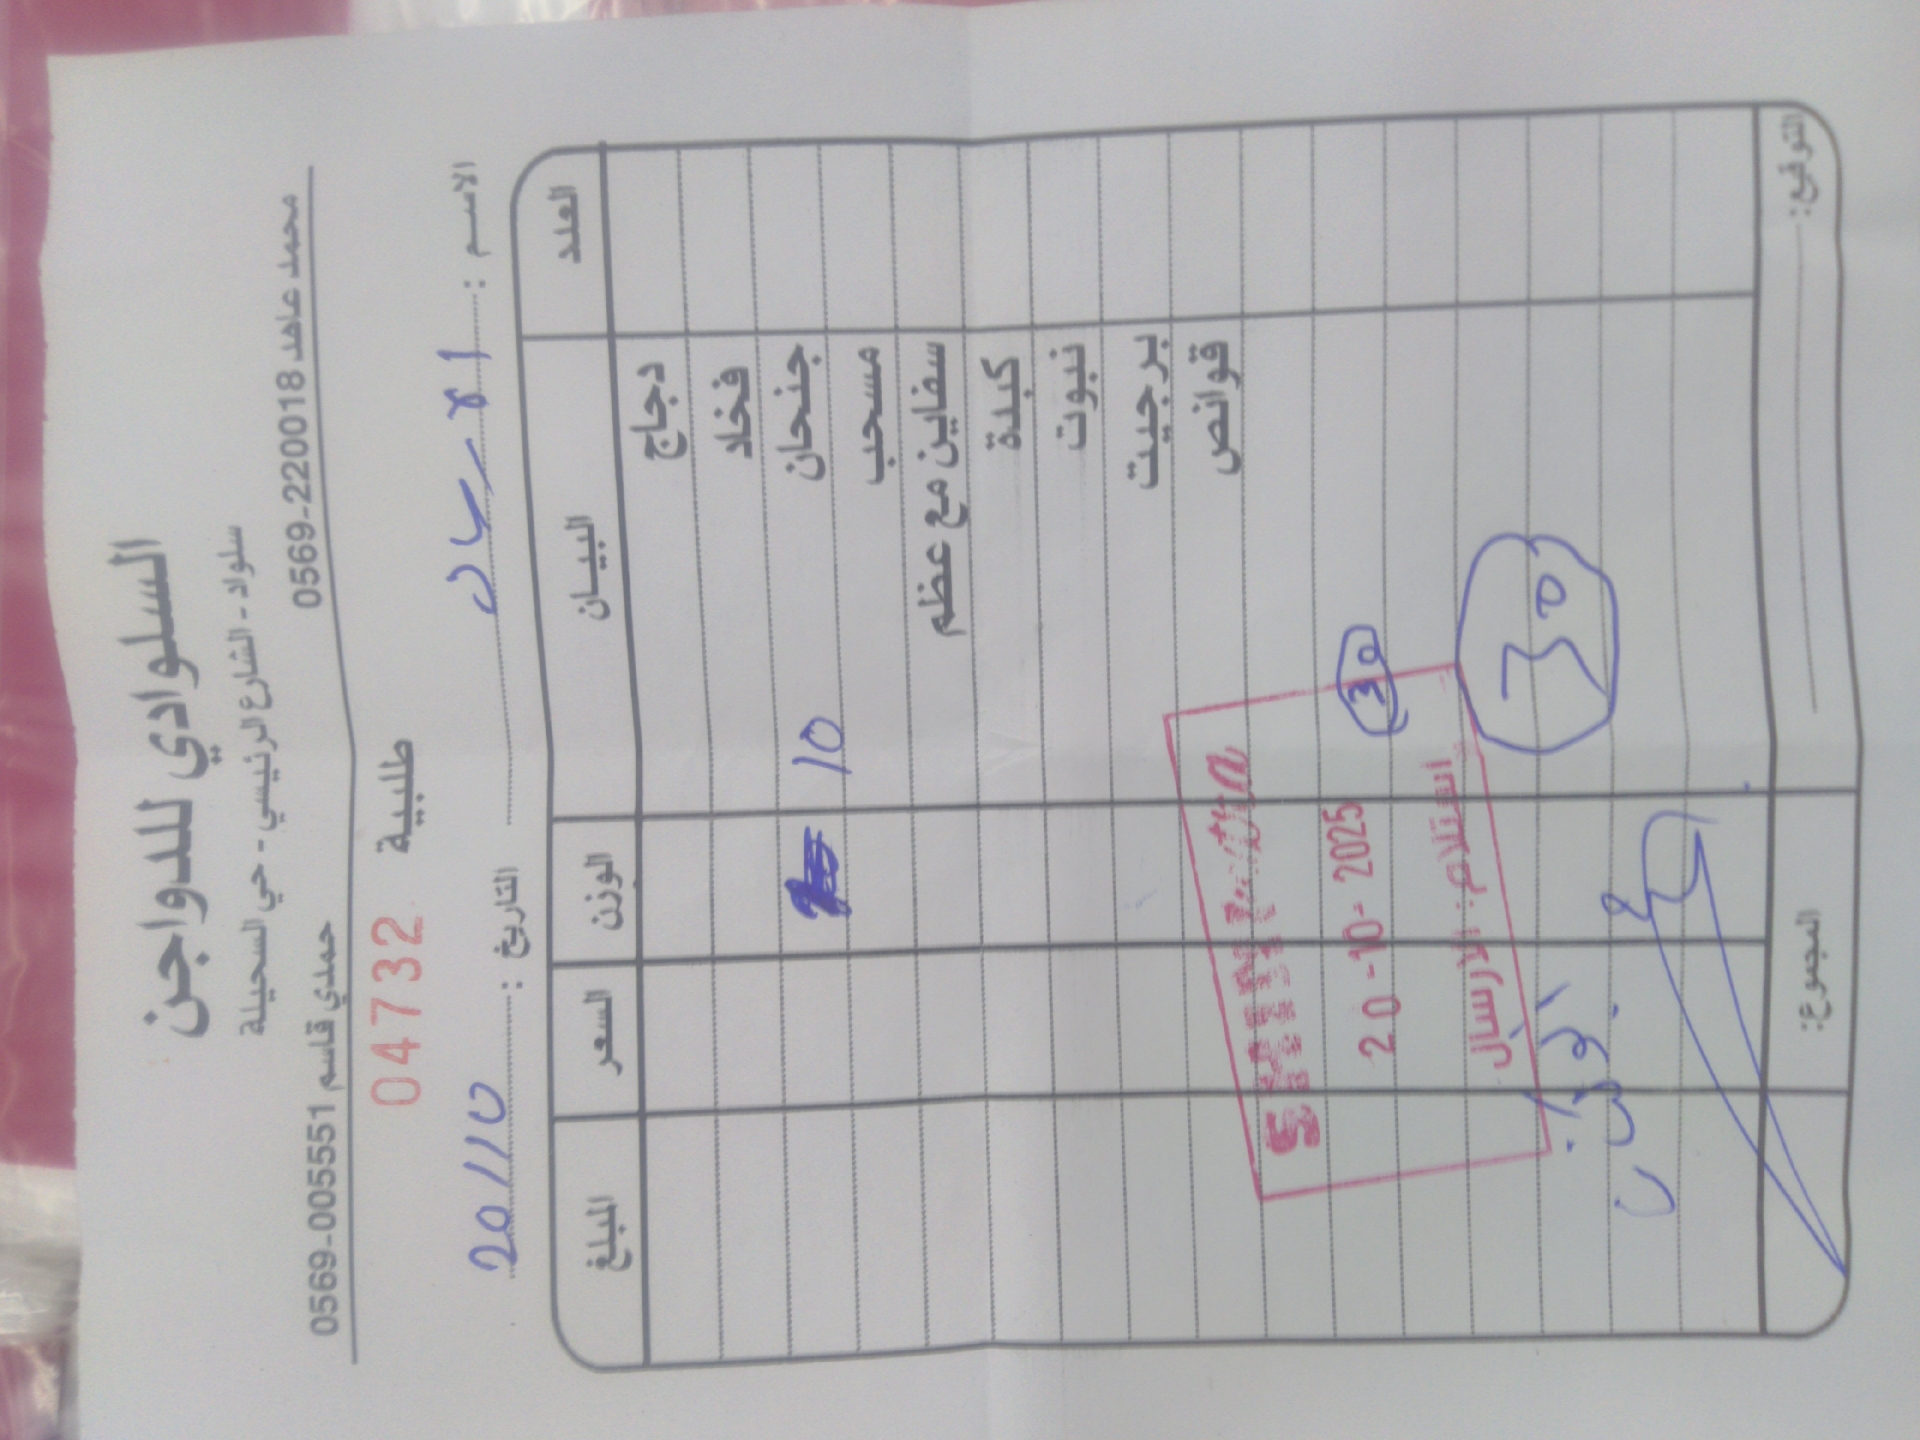 السلوادي للدواجن
سلواد - الشارع الرئيسي - حي السحيلة
محمد عاهد 0569-220018 حمدي قاسم 0569-005551
طلبية 04732
الاسم : التاريخ : 20/10
العدد البيان الوزن السعر المبلغ
دجاج
فخاد
جنحان 10
مسحب
سفاين مع عظم
كبدة
نبوت
برجيت
قوانص
30
20-10-2025
استلام: الارسال
30
التوقيع: المجموع: